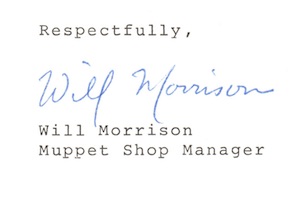 Respectfully,
Will Morrison
Will Morrison
Muppet Shop Manager